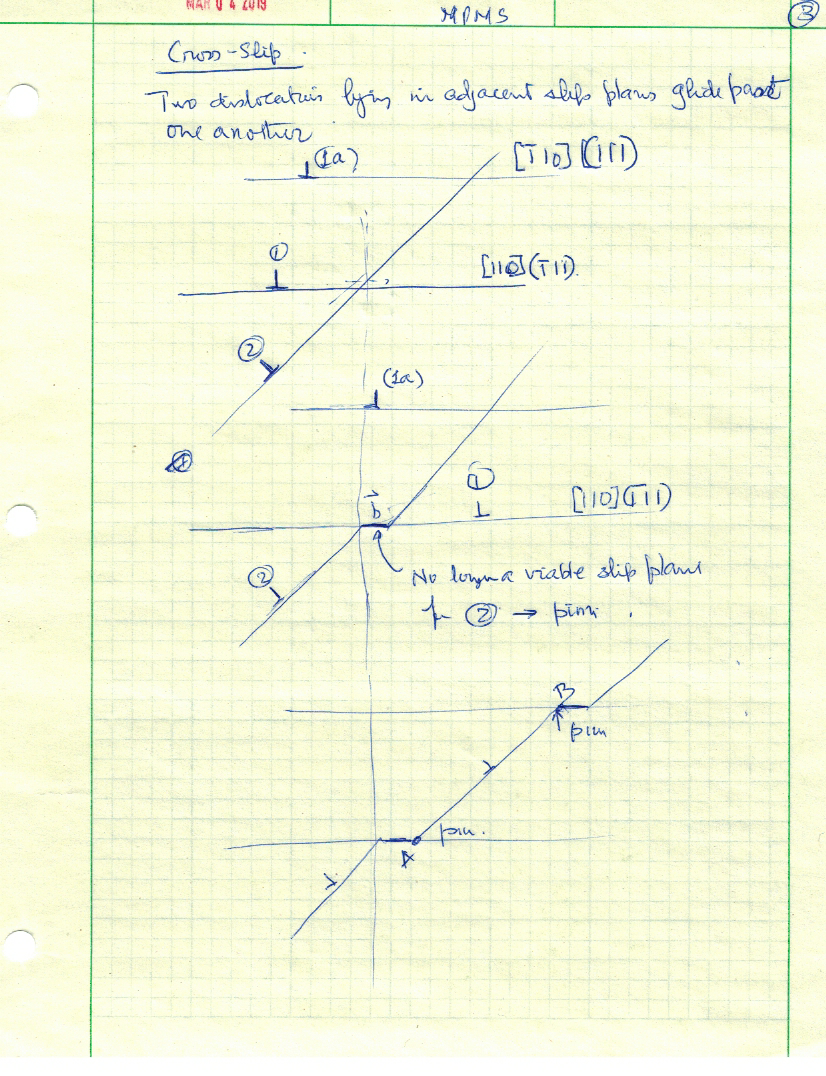 MAR 04 2019
MPMS
③
Cross-Slip.
Two dislocations lying in adjacent slip plans glide past
one another
(1a)
[1̄10](111)
①
[110](1̄11).
②
(1a)
①
b⃗
[110](1̄11)
②
No longer a viable slip plans
for ② → pinn.
B
pinn
pin.
A